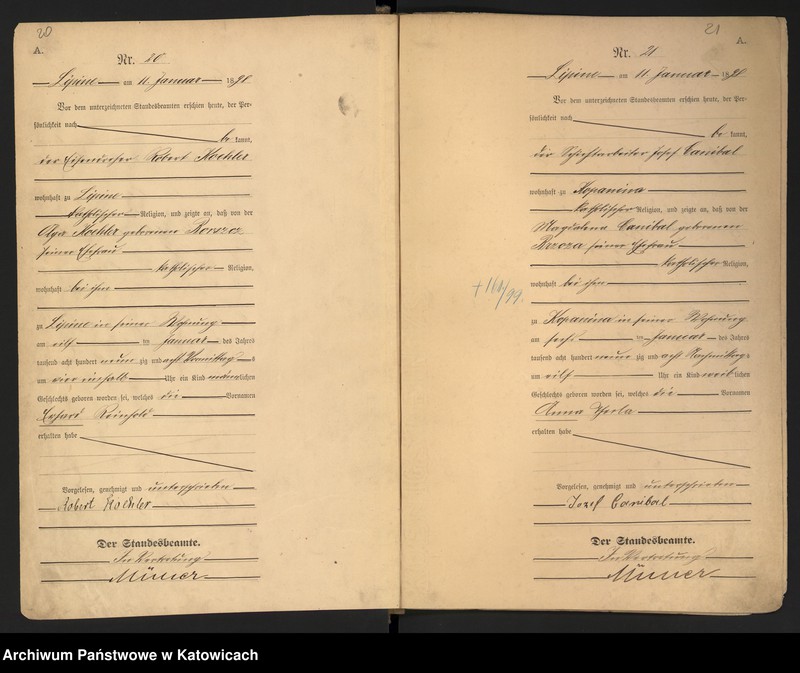 20
A.
Nr. 20
Lipine am 11 Januar 1898
Vor dem unterzeichneten Standesbeamten erschien heute, der Per-
sönlichkeit nach
be kannt,
der Eisendreher Robert Koehler
wohnhaft zu Lipine
katholischer Religion, und zeigte an, daß von der
Koehler geborenen
seiner Ehefrau
katholischer Religion,
wohnhaft bei ihm
zu Lipine in seiner Wohnung
am elf ten Januar des Jahres
tausend acht hundert neun zig und acht Vormittags
um vier einhalb Uhr ein Kind männlichen
Geschlechts geboren worden sei, welches die Vornamen
Reinhold
erhalten habe
Vorgelesen, genehmigt und unterschrieben
Robert Koehler
Der Standesbeamte.
In Vertretung
21
A.
Nr. 21
Lipine am 11 Januar 1898
Vor dem unterzeichneten Standesbeamten erschien heute, der Per-
sönlichkeit nach
be kannt,
der Josef Canibal
wohnhaft zu Kopanina
katholischer Religion, und zeigte an, daß von der
Magdalena Canibal geborenen
seiner Ehefrau
katholischer Religion,
wohnhaft bei ihm
zu Kopanina in seiner Wohnung
am sechs ten Januar des Jahres
tausend acht hundert neun zig und acht Nachmittags
um elf Uhr ein Kind weiblichen
Geschlechts geboren worden sei, welches die Vornamen
Anna Thekla
erhalten habe
Vorgelesen, genehmigt und unterschrieben
Jozef Canibal
Der Standesbeamte.
In Vertretung
Archiwum Państwowe w Katowicach